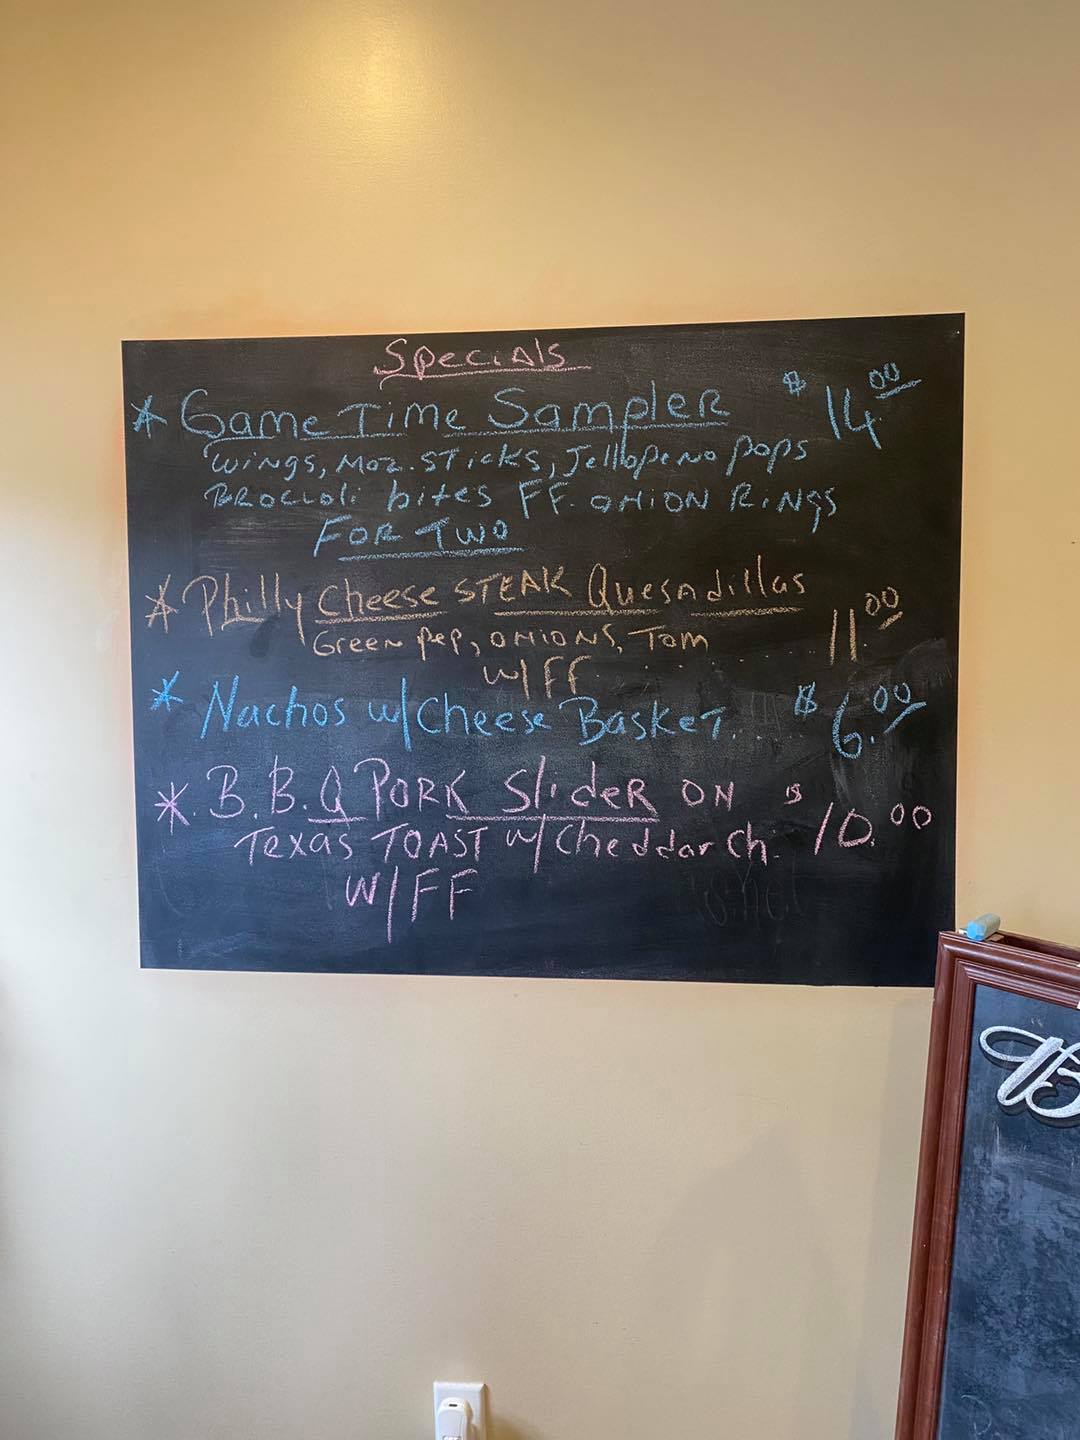 Specials
* Game Time Sampler $ 14.00
Wings, Moz. Sticks, Jellopeno pops
Broccoli bites FF. Onion Rings
For Two
* Philly Cheese STEAK Quesadillas
Green pep, onions, Tom ..... 11.00
W/FF
* Nachos w/Cheese Basket..... $ 6.00
* B.B.Q PORK Slider ON $ 10.00
Texas TOAST w/Cheddar Ch.
W/FF
B